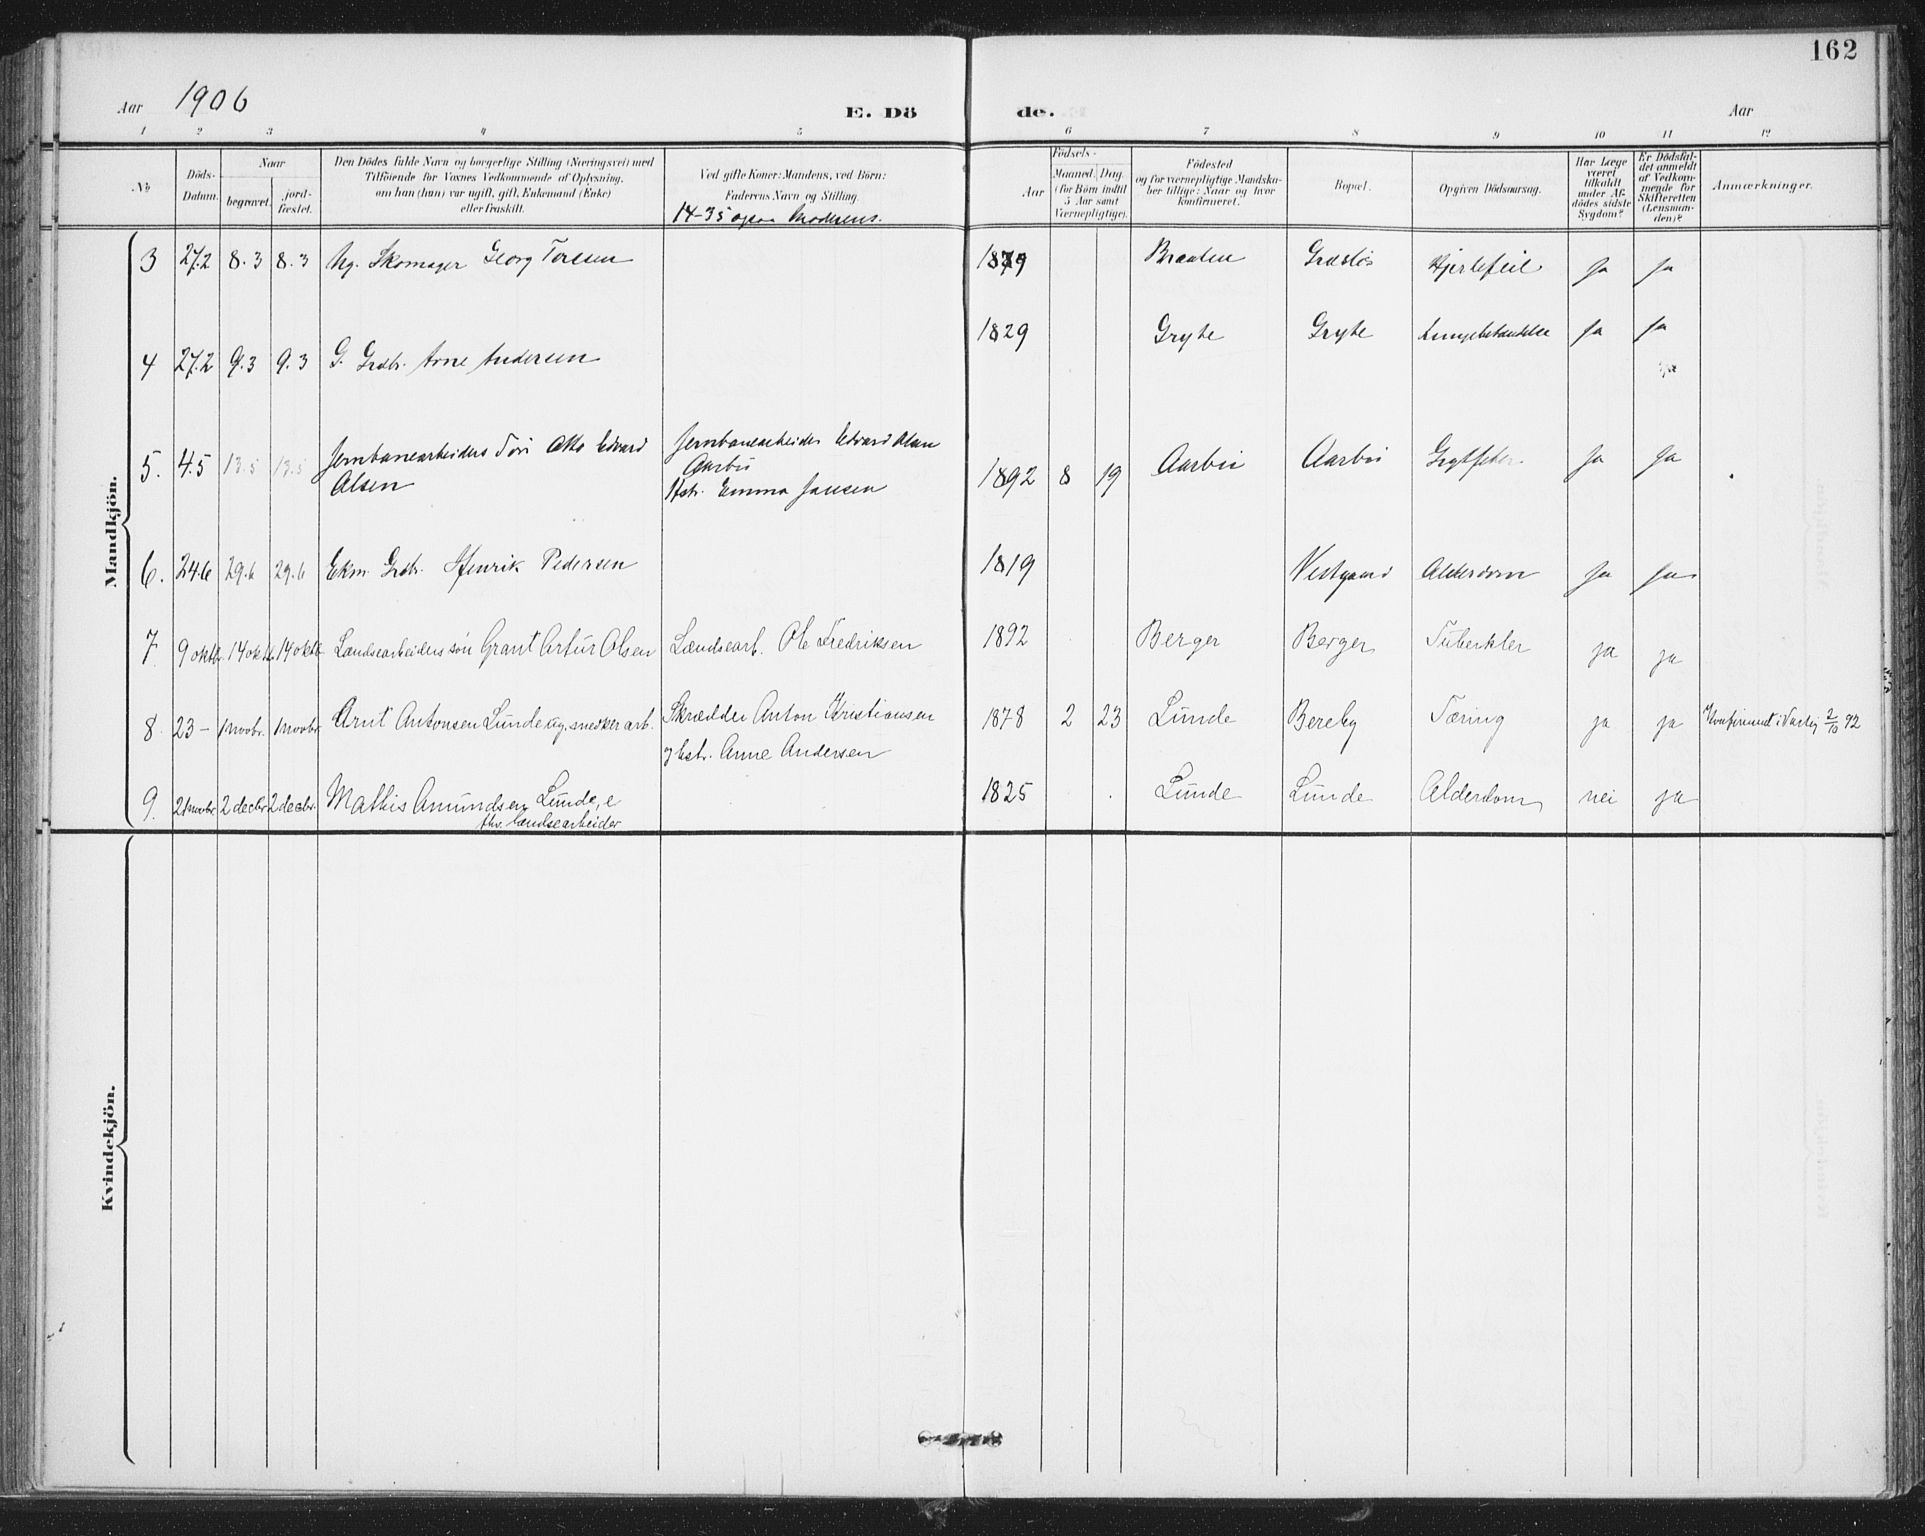 162
Aar 1906
E. Dö de.
Aar
1 2 3 4 5 6 7 8 9 10 11 12
No
Döds-Datum.
Naar
begravet.
jord-fæstet.
Den Dödes fulde Navn og borgerlige Stilling (Næringsvei) med
Tilföiende for Voxnes Vedkommende af Oplysning,
om han (hun) var ugift, gift, Enkemand (Enke)
eller fraskilt.
Ved gifte Koner: Mandens, ved Börn:
Faderens Navn og Stilling.
14-35 ogsaa Moderens.
Födsels-
Aar
Maaned. Dag.
(for Börn indtil
5 Aar samt
Værnepligtige).
Födested
og for værnepligtige Mandska-
ber tillige: Naar og hvor
konfirmeret.
Bopæl.
Opgiven Dödsaarsag.
Har Læge
været
tilkaldt
under Af-
dödes sidste
Sygdom?
Er Dödsfal-
det anmeldt
af Vedkom-
mende for
Skifteretten
(Lensman-
den)?
Anmærkninger.
Mandkjön.
3 27.2 8.3 8.3 Ug. Skomager Georg Toresen 1879 Braaten Græsløs Hjertefeil Ja Ja
4 27.2 9.3 9.3 G. Grdbr. Arne Andersen 1829 Gryte Gryte Lungebetændelse Ja Ja
5. 4.5 13.5 13.5 Jernbanearbeiders Søn Otto Edvard
Olsen
Jernbanearbeider Edvard Olsen
Aarbu
Hstr. Emma Jansen
1892 8 19 Aarbu Aarbu Ja Ja
6. 24.6 29.6 29.6 Ekm. Grdbr. Henrik Pedersen 1819 Vestgaard Alderdom Ja Ja
7 9 oktbr. 14 oktbr. 14 oktbr. Lændsearbeiders søn Grant Artur Olsen Lændsearb. Ole Fredriksen 1892 Berger Berger Tuberkler ja ja
8. 23 – 1 novbr. 1 novbr. Arnt Antonsen Lunde ug. snedkerarb. Skrædder Anton Kristiansen
og hstr. Anne Andersen
1878 2 23 Lunde Bereby Tæring ja ja Konfirmert i Varteig 2/10 92
9. 21 novbr. 2 decbr. 2 decbr. Mathis Amundsen Lunde, e
fhv. lændsearbeider
1825 Lunde Lunde Alderdom nei ja
Kvindekjön.